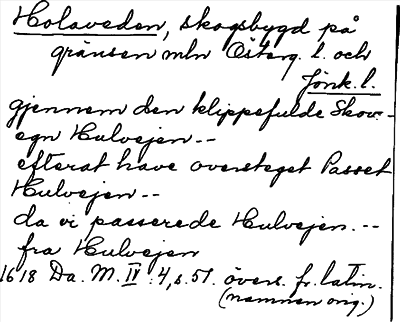 Holaveden, skogsbygd på
gränsen mln Österg. l. och
Jönk. l.
gjennem den klippefulde Skov-
egn Hulvejen--
efterat have oversteget Passet
Hulvejen--
da vi passerede Hulvejen.--
fra Hulvejen
1618 Da. M. IV :4, s. 51. övers. fr. latin.
(namnen orig.)